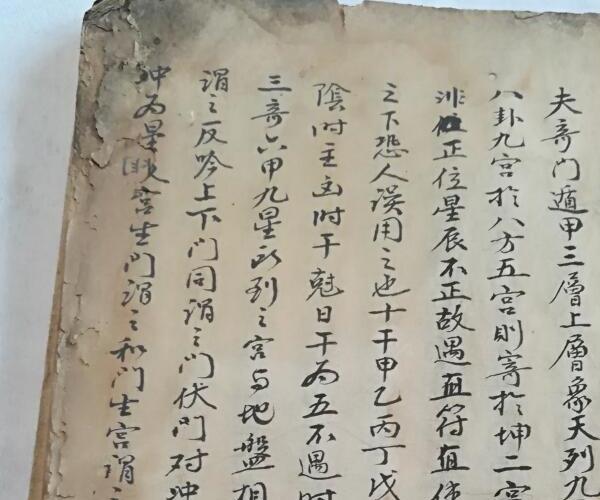 夫奇门遁甲三層上層象天列九
八卦九宮於八方五宮則寄於坤二宮
非位正位星辰不正故遇直符直使
之下恐人误用之也十干甲乙丙丁戊
陰时主凶时干尅日干為五不遇时
三奇六甲九星所到之宮与地盤相
謂之反吟上下门同謂之门伏门对冲
冲為星吟宮生门謂之和门生宮謂之